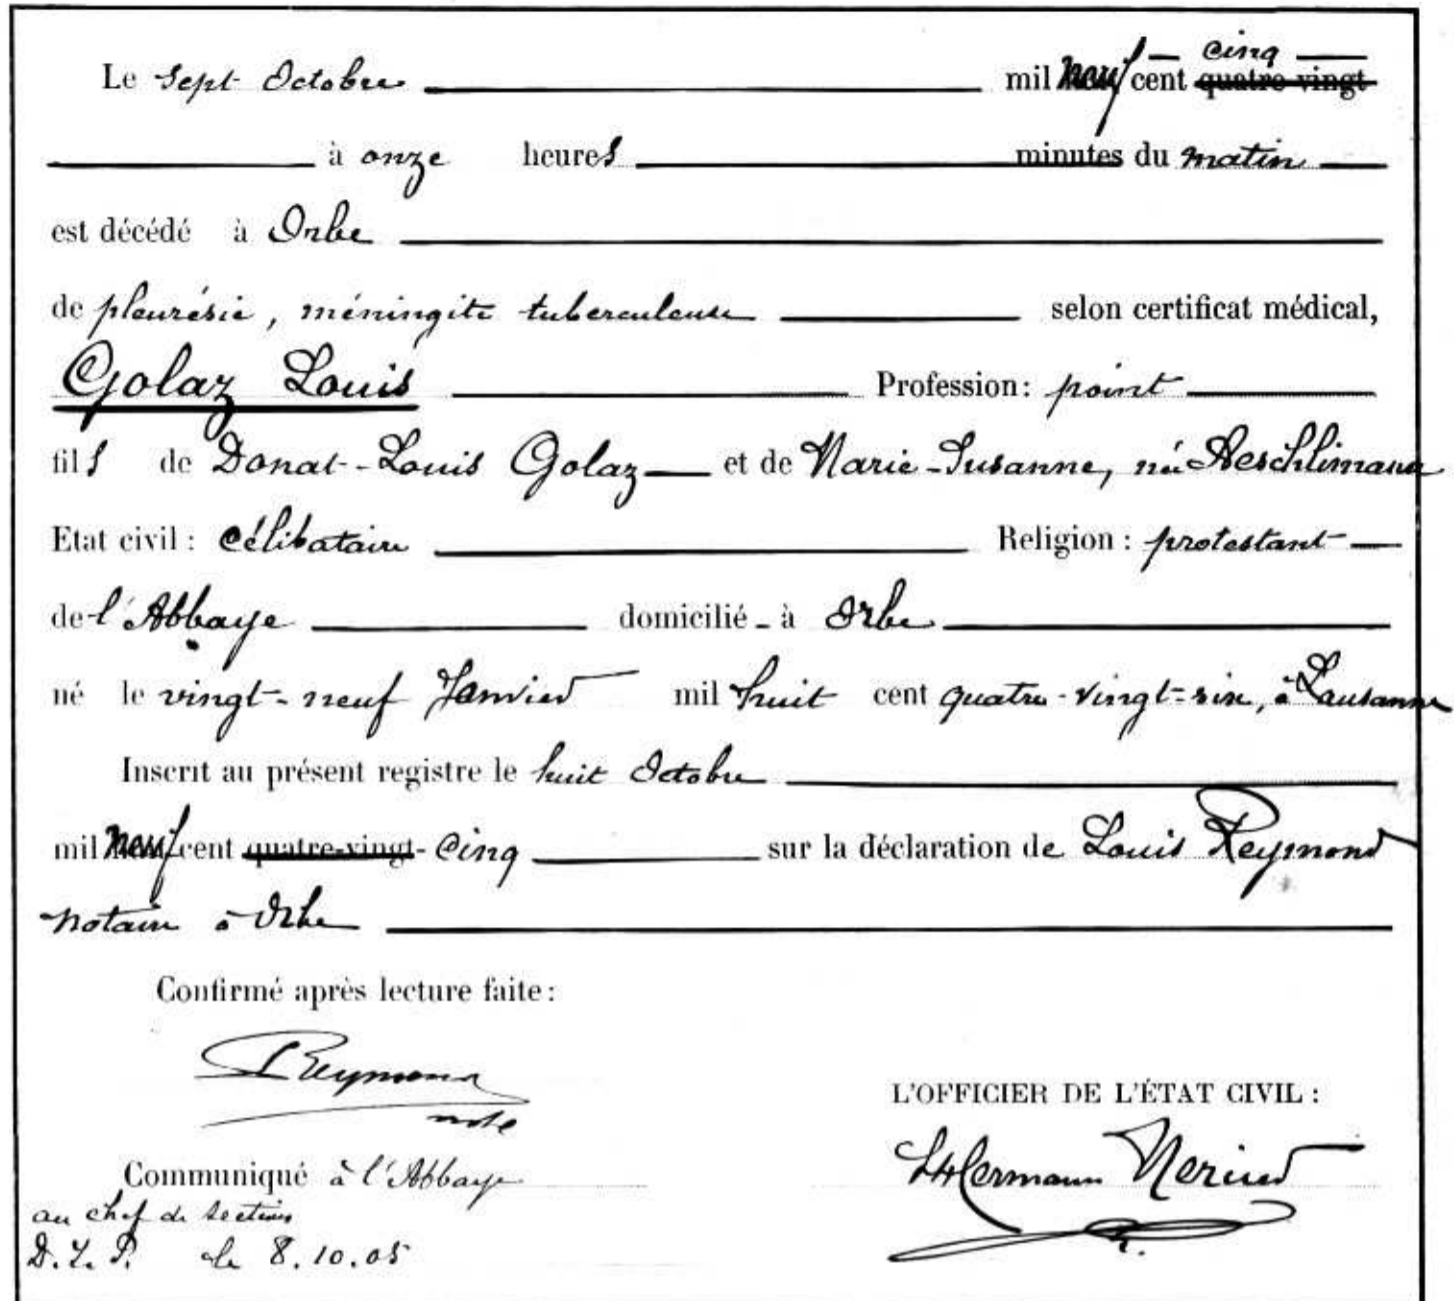 cinq
Le sept Octobre mil neuf cent quatre-vingt
à onze heures minutes du matin
est décédé à Orbe
de pleurésie, méningite tuberculeuse selon certificat médical,
Golaz Louis Profession: point
fils de Donat-Louis Golaz et de Marie-Susanne, née Aeschlimann
Etat civil : célibataire Religion : protestant
de l'Abbaye domicilié à Orbe
né le vingt-neuf Janvier mil huit cent quatre-vingt-six, à Lausanne
Inscrit au présent registre le huit Octobre
mil neuf cent quatre-vingt-cinq sur la déclaration de Louis Reymond
notaire à Orbe
Confirmé après lecture faite :
Reymond
note
L'OFFICIER DE L'ÉTAT CIVIL :
Hermann
Communiqué à l'Abbaye
au chef de section
le 8.10.05